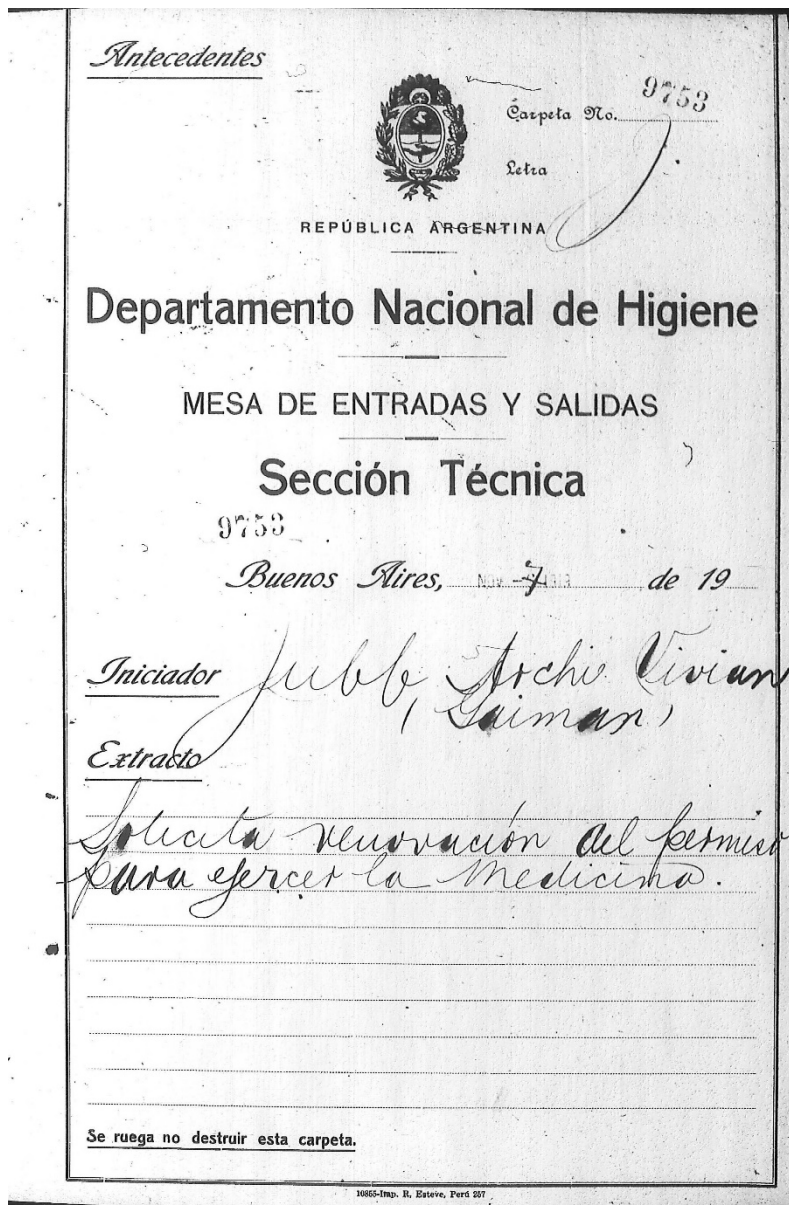 Antecedentes
Carpeta No. 9753
Letra J
REPÚBLICA ARGENTINA
Departamento Nacional de Higiene
MESA DE ENTRADAS Y SALIDAS
Sección Técnica
9753
Buenos Aires, NOV 7 de 19
Iniciador Jubb Archi Vivian
(Gaiman)
Extracto
Solicita renovación del permiso
para ejercer la Medicina.
Se ruega no destruir esta carpeta.
10855-Imp. R, Esteve, Perú 257